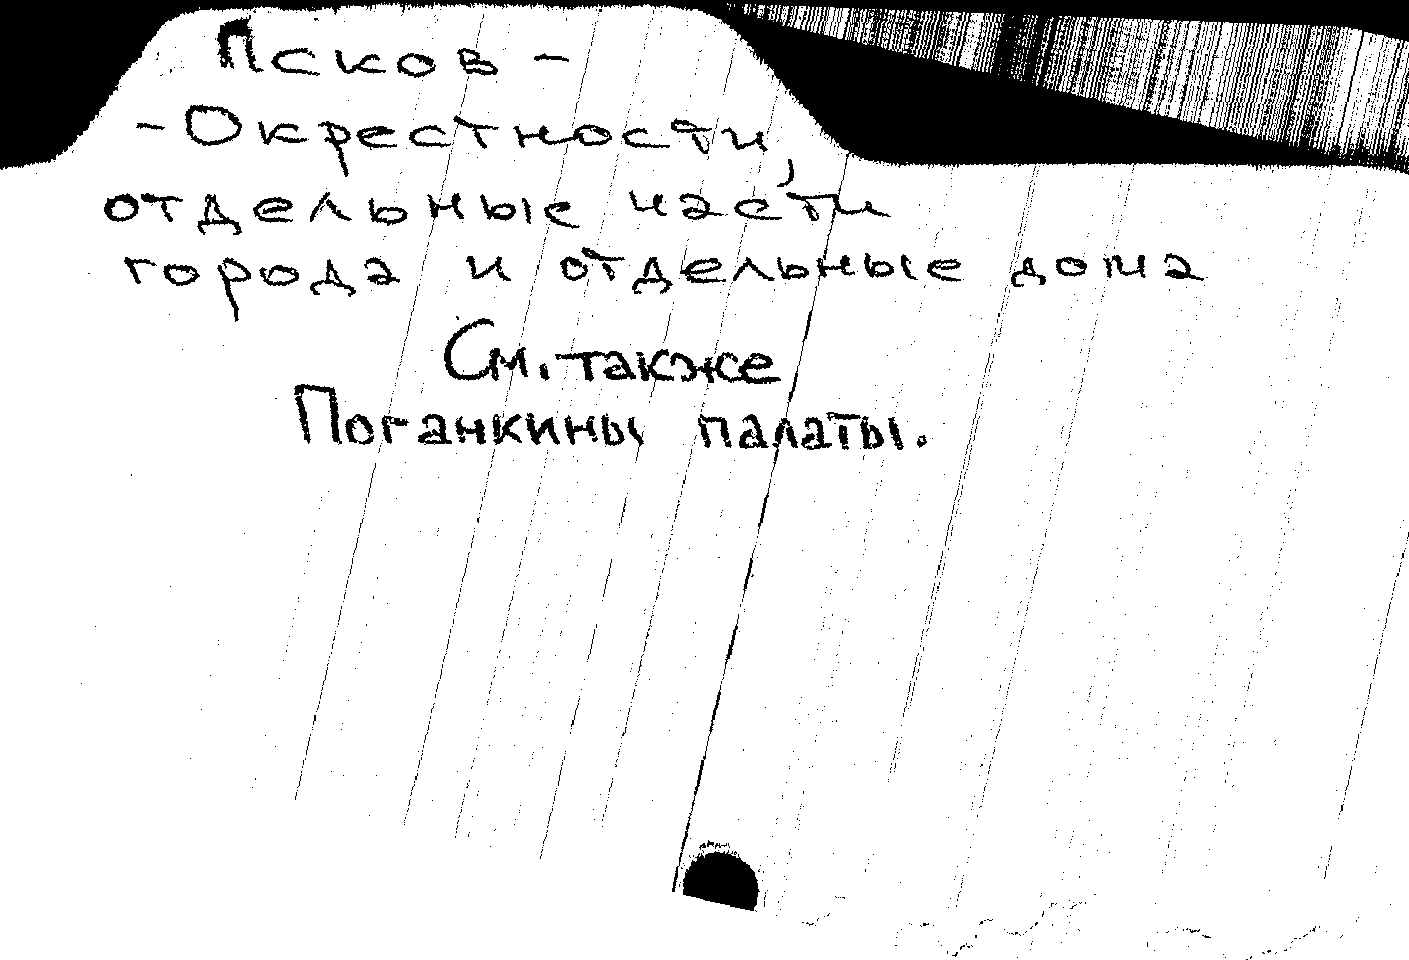 Псков -
- Окрестности,
отдельные части
города и отдельные дома
См. также
Поганкины палаты.